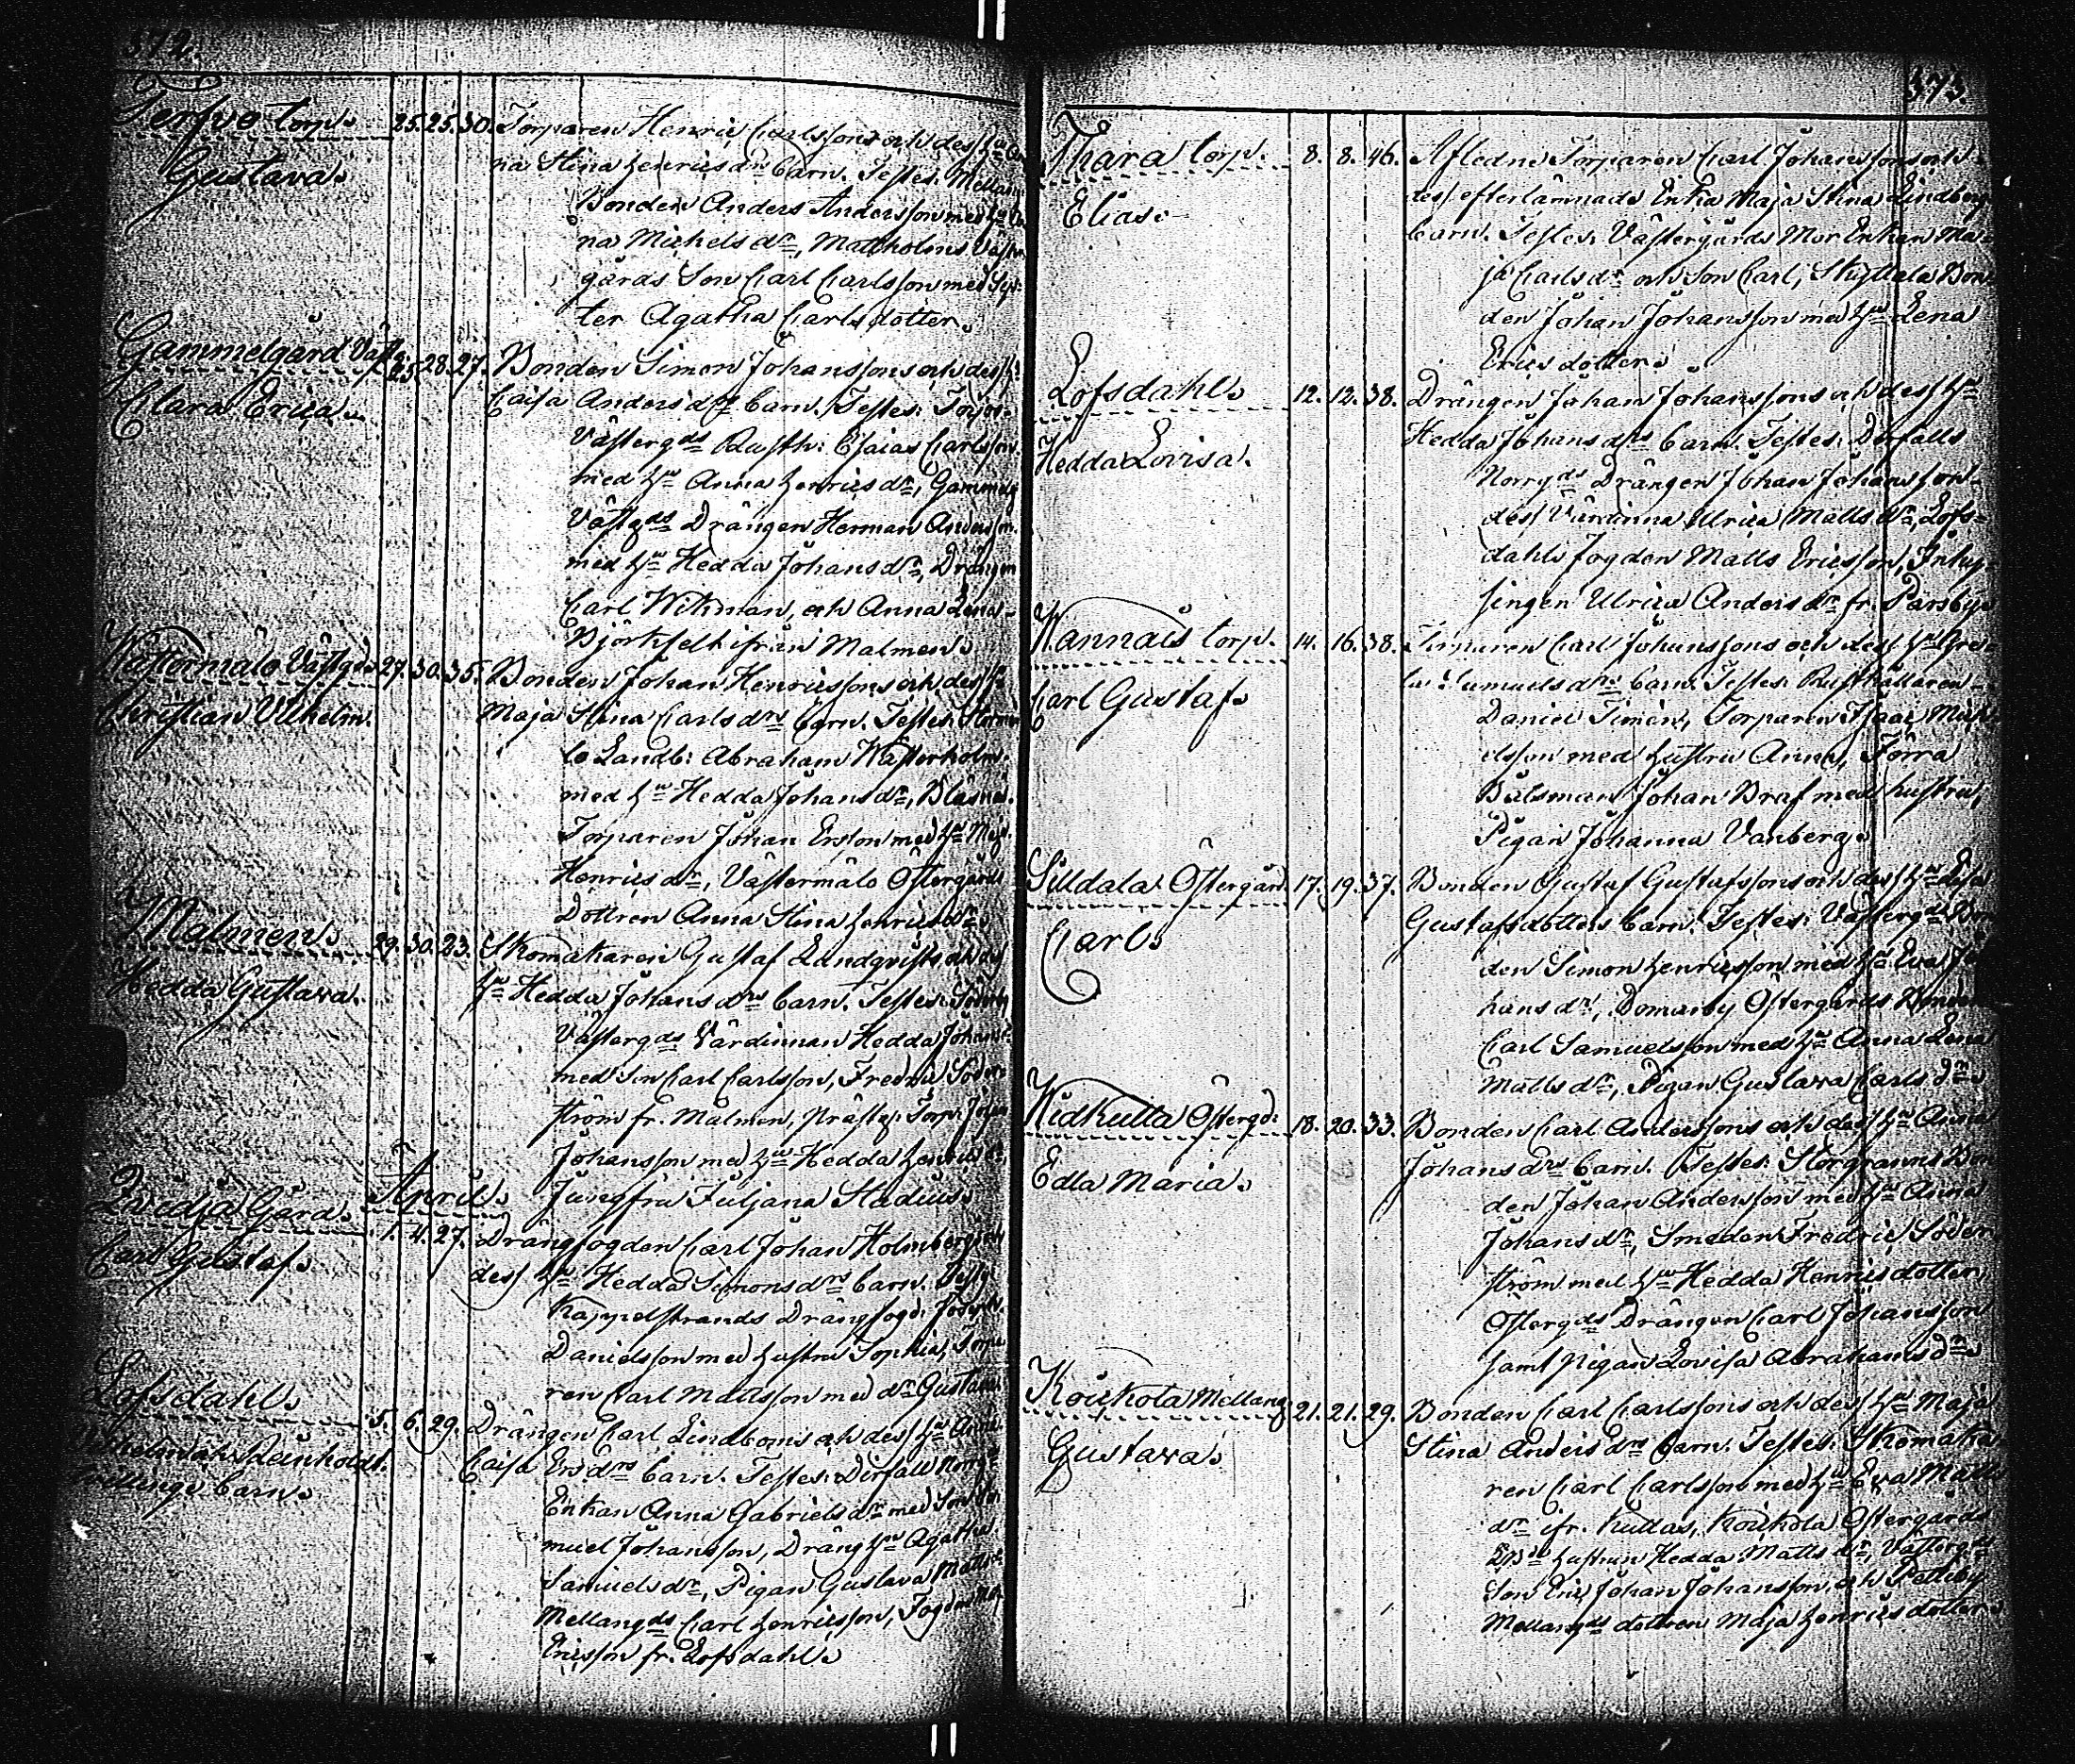 372.
Terfvo torp. 25. 25. 30. Torparen Henric Carlssons och dess
Gustava. na Stina Henricsdrs Barn. Testes. Mellang
Bonden Anders Andersson med
na Michelsdr, Mattholms Väster
gårds Son Carl Carlsson med Sys-
ter Agatha Carlsdotter.
Gammelgård Västg. 25. 28. 27. Bonden Simon Johanssons och dess
Clara Erica. Caisa Andersdrs Barn. Testes:
Västergds Rusth: Esaias Carlsson
med Hu Anna Henricsdr, Gammelg
Västgds Drängen Herman Anderson
med Hu Hedda Johansdr, Drängen
Carl Wikman, och Anna Lena
Björkfelt ifrån Malmen.
Västermålo Västgd 27. 30. 35. Bonden Johan Henricssons och dess
Christian Vilhelm. Maja Stina Carlsdrs Barn. Testes.
lo Landb: Abraham Wästerholm
med Hu Hedda Johansdr, Blåsnäs
Torparen Johan Ersson med Hu Maja
Henricsdr, Västermålo Östergårds
Dottren Anna Stina Henricsdr.
Malmen. 29. 30. 23. Skomakaren Gustaf Lundqvists och dess
Hedda Gustava. Hu Hedda Johansdrs Barn. Testes:
Västergds Värdinnan Hedda Johansd
med Son Carl Carlsson, Fredric Söder-
ström fr. Malmen, Prästg: Torp: Johan
Johansson med Hu Hedda Henricsdr,
April. Jungfru Juliana Stadius.
Qvidja Gård. 1. 4. 27. Drängfogden Carl Johan Holmbergs och
Carl Gustaf. dess Hu Hedda Simonsdrs Barn. Test:
Kappelstrands Drängfogd:
Danielsson med hustru Sophia, Torpa
ren Carl Mattsson med dr Gustava.
Lofsdahl. 5. 6. 29. Drängen Carl Lindboms och dess Hu Anna
Vilhelm och Reinholdt. Caisa Ersdrs Barn. Testes: Dirfall Norrgds
Tvillinge Barn. Enkan Anna Gabrielsdr med Son Sa
muel Johansson, Dräng Hu Agatha
Samuelsdr, Pigan Gustava Mattsdr
Mellangds Carl Henricsson, Fogden Mats
Ericsson fr. Lofsdahl.
373.
Thara torp. 8. 8. 46. Afledne Torparen Carl Johanssons och
Elias. dess efterlämnade Enka Maja Stina Lindberg
Barn. Testes: Västergårds Mor Enkan Ma-
ja Carlsdr och Son Carl, Skyttala Bon-
den Johan Johansson med Hu Lena
Ericsdotter.
Lofsdahl. 12. 12. 38. Drängen Johan Johanssons och dess Hu
Hedda Lovisa. Hedda Johansdrs Barn. Testes: Dirfalls
Norrgds Drängen Johan Johansson
dess Värdinna Ulrica Mattsdr, Lofs-
dahls Fogden Matts Ericsson, Inhy-
singen Ulrica Andersdr fr. Parsby.
Nannais torp. 14. 16. 38. Torparen Carl Johanssons och dess Hu Gre
ta Samuelsdrs Barn. Testes: Rusthållaren
Carl Gustaf. Daniel Simen, Torparen Isaac Mich-
elsson med hustru Anna, Förra
Båtsman Johan Braf med hustru,
Pigan Johanna Vanberg.
Silldala Östergård. 17. 19. 37. Bonden Gustaf Gustafssons och dess Hu Lisa
Carl. Gustafsdotters Barn. Testes: Västergds Bon
den Simon Henricsson med Hu Eva Jo
hansdr, Domarby Östergårds Bonden
Carl Samuelsson med Hu Anna Lena
Mattsdr, Pigan Gustava Carlsdr.
Nidkulla Östergd: 18. 20. 33. Bonden Carl Anderssons och dess Hu Anna
Edla Maria. Johansdrs Barn. Testes: Storgranns Bon
den Johan Andersson med Hu Anna
Johansdr, Smeden Fredric Söder
ström med Hu Hedda Henricsdotter,
Östergds Drängen Carl Johansson
samt Pigan Lovisa Abrahamsdr.
Koukola Mellang 21. 21. 29. Bonden Carl Carlssons och dess Hu Maja
Gustava. Stina Andersdrs Barn. Testes: Skomaka
ren Carl Carlsson med Hu Eva Matts
dr ifr. Kullas, Koukola Östergårds
hustrun Hedda Mattsdr, Västergds
Son Eric Johan Johansson, och Petteby
Mellangds dottren Maja Henricsdotter.